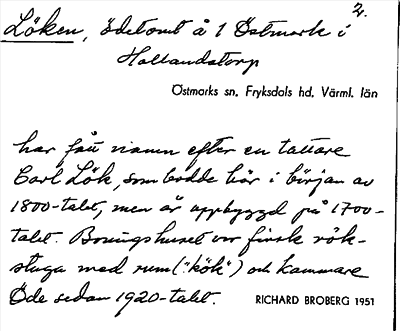 2.
Löken, ödetomt å 1 Östmark i
Hallandstorp
Östmarks sn, Fryksdals hd. Värml. län
har fått namn efter en tattare
Carl Lök, som bodde här i början av
1800-talet, men är uppbyggd på 1700-
talet. Boningshuset var finsk rök-
stuga med rum ("kök") och kammare
Öde sedan 1920-talet.
RICHARD BROBERG 1951